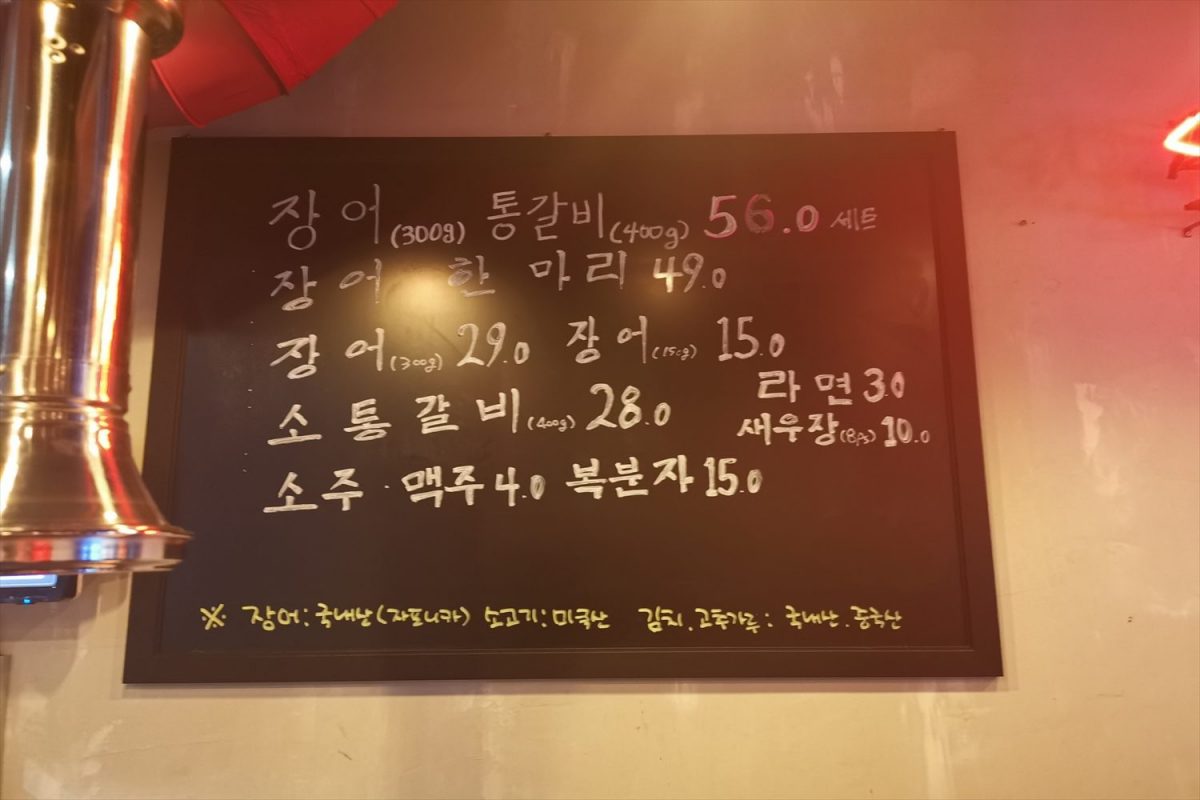 장어(300g) 통갈비(400g) 56.0 세트
장어 한 마리 49.0
장어(300g) 29.0 장어(150g) 15.0
라면 3.0
소통갈비(400g) 28.0
새우장(8ps) 10.0
소주·맥주 4.0 복분자 15.0
※ 장어:국내산(자포니카) 소고기:미국산 김치.고추가루: 국내산.중국산